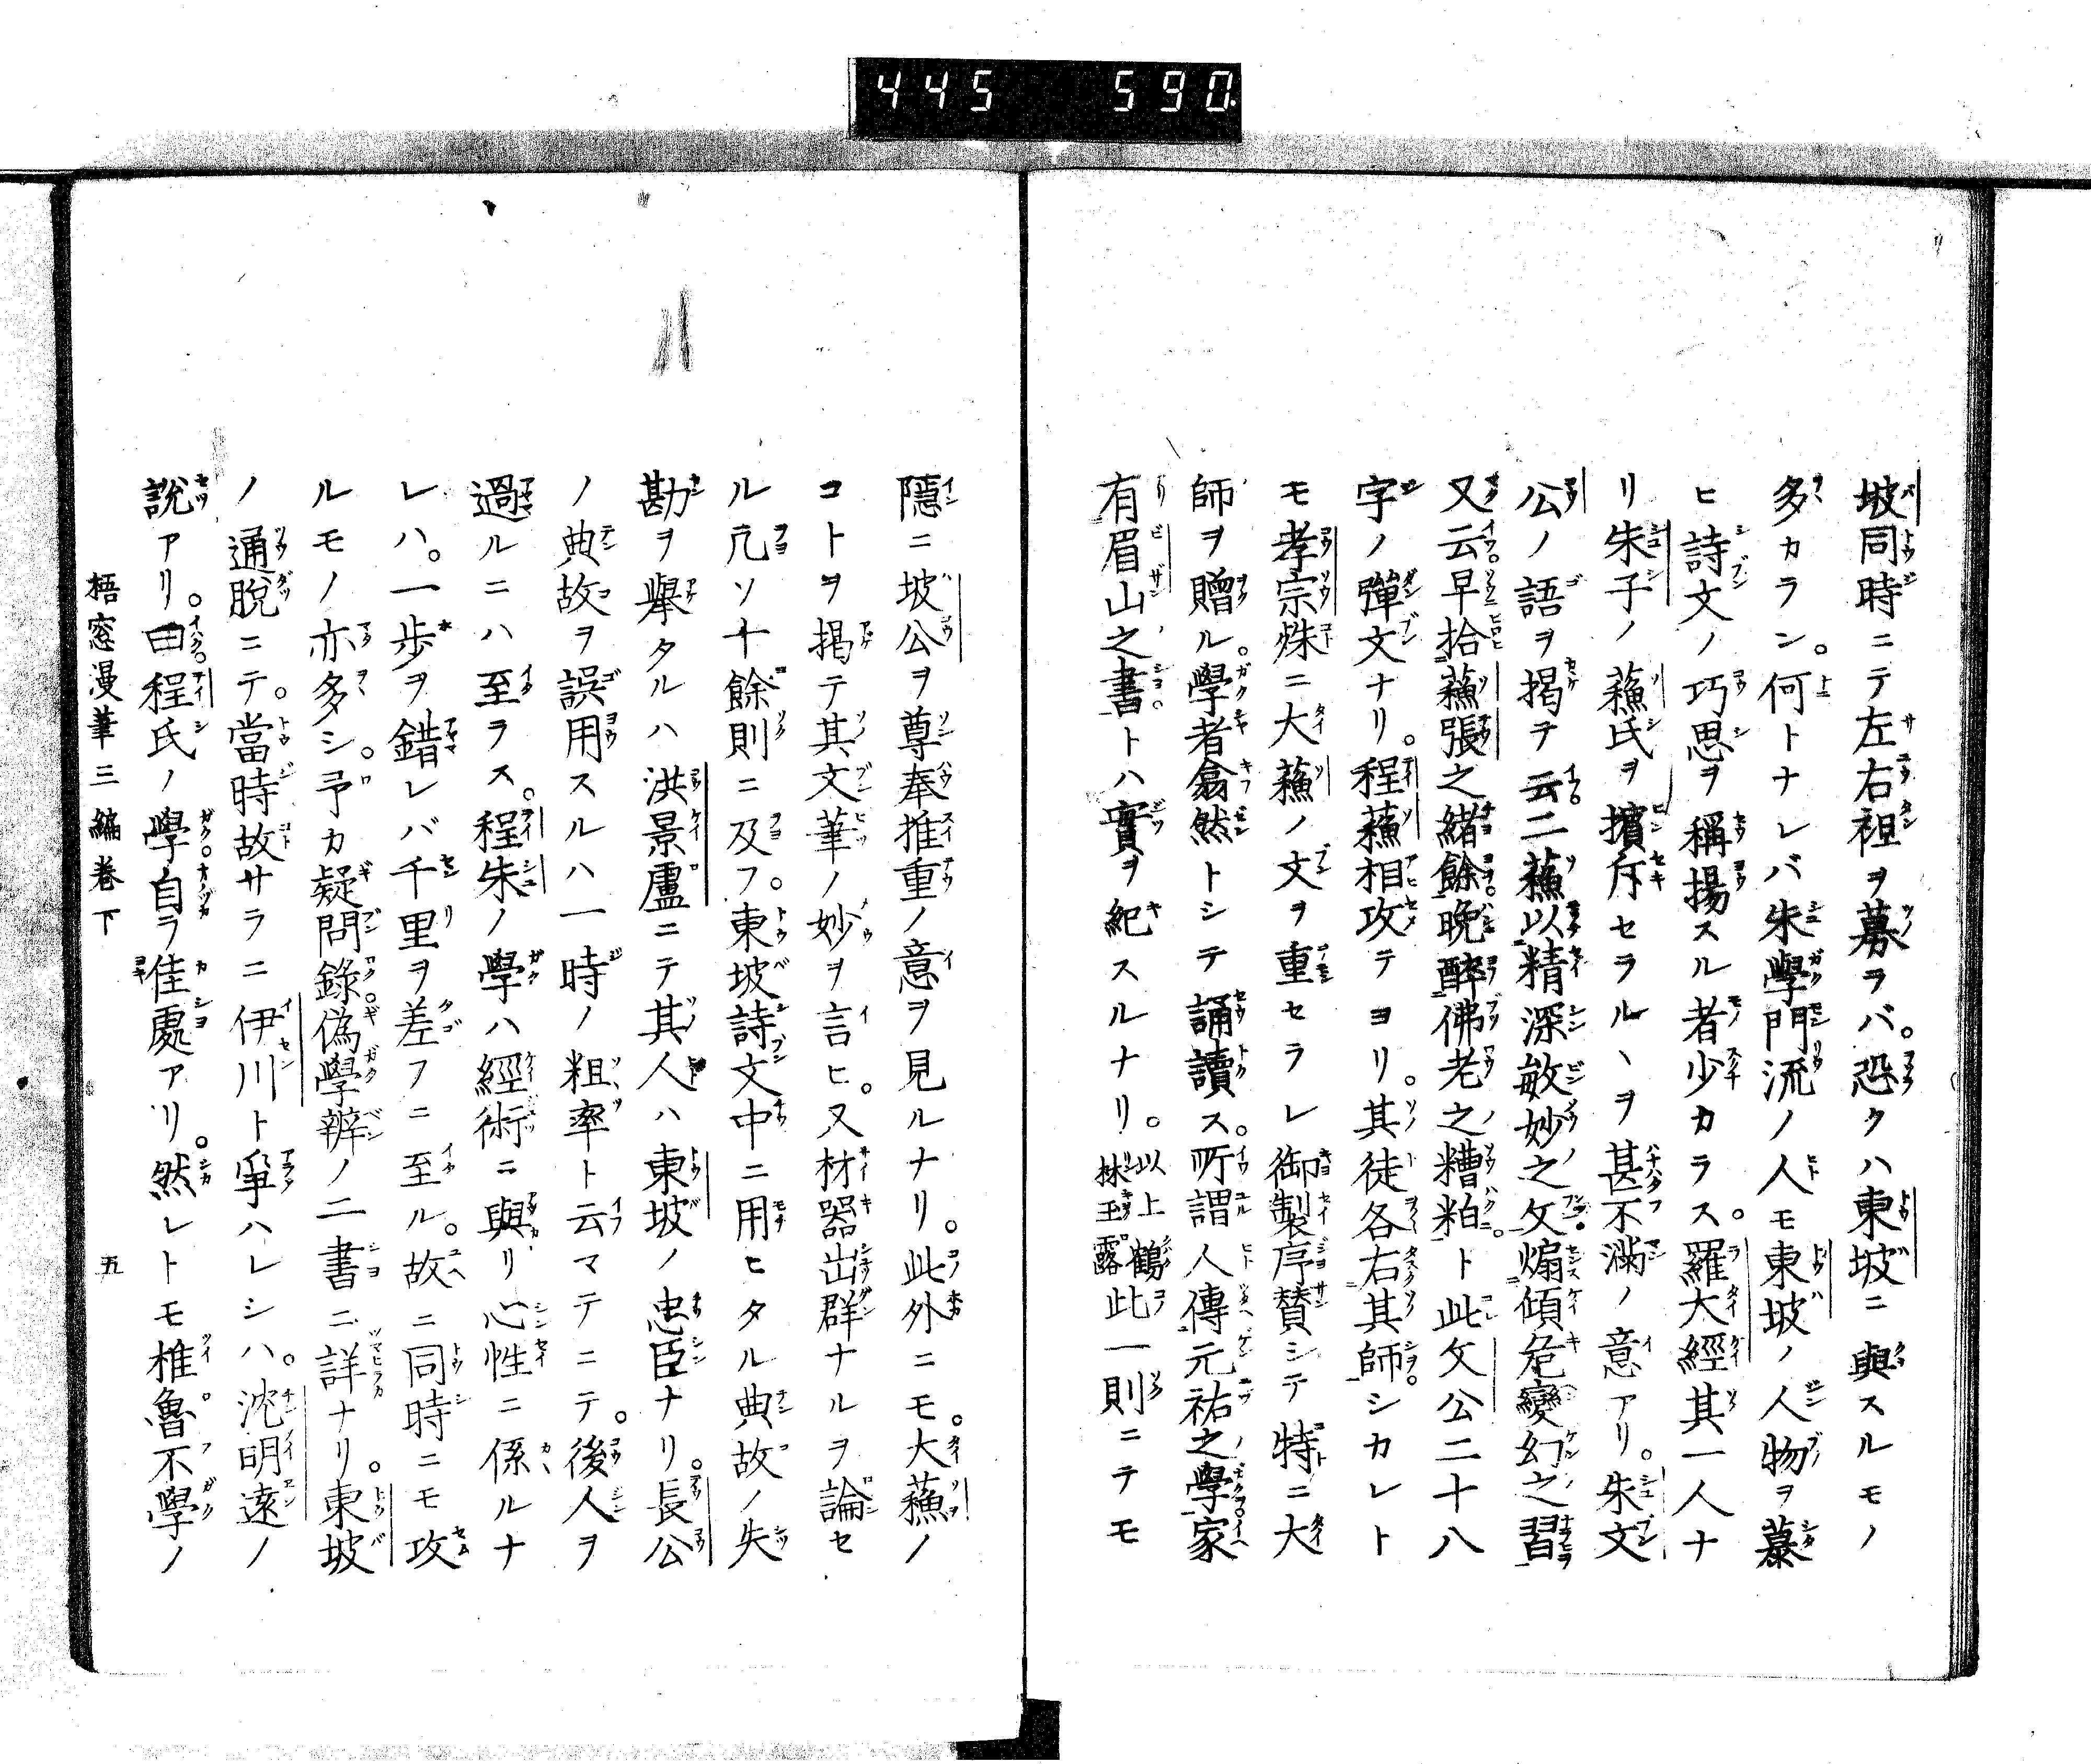 445 590
坡同時ニテ左右袒ヲ募ラバ。恐クハ東坡ニ與スルモノ
多カラン。何トナレバ朱學門流ノ人モ東坡ノ人物ヲ慕
ヒ詩文ノ巧思ヲ稱揚スル者少カラス。羅大經其一人ナ
リ朱子ノ蘓氏ヲ擯斥セラルヽヲ甚不滿ノ意アリ。朱文
公ノ語ヲ揭テ云二蘓以精深敏妙之文煽傾危變幻之習
又云早拾蘓張之緒餘晩醉佛老之糟粕ト此文公二十八
字ノ彈文ナリ。程蘓相攻テヨリ。其徒各右其師シカレト
モ孝宗殊ニ大蘓ノ文ヲ重セラレ御製序賛シテ特ニ大
師ヲ贈ル。學者翕然トシテ誦讀ス。所謂人傳元祐之學家
有眉山之書トハ實ヲ紀スルナリ。以上鶴林玉露此一則ニテモ
隱ニ坡公ヲ尊奉推重ノ意ヲ見ルナリ。此外ニモ。大蘓ノ
コトヲ揭テ其文筆ノ妙ヲ言ヒ。又材器出群ナルヲ論セ
ル凢ソ十餘則ニ及フ。東坡詩文中ニ用ヒタル典故ノ失
勘ヲ擧タルハ洪景盧ニテ其人ハ東坡ノ忠臣ナリ。長公
ノ典故ヲ誤用スルハ一時ノ粗率ト云マテニテ。後人ヲ
過ルニハ至ラス。程朱ノ學ハ經術ニ與リ心性ニ係ルナ
レハ。一歩ヲ錯レバ千里ヲ差フニ至ル。故ニ同時ニモ攻
ルモノ亦多シ。予カ疑問錄。僞學辨ノ二書ニ詳ナリ。東坡
ノ通脫ニテ。當時故サラニ伊川ト爭ハレシハ。沈明遠ノ
說アリ。曰程氏ノ學自ラ佳處アリ。然レトモ椎魯不學ノ
梧窓漫筆三編卷下 五